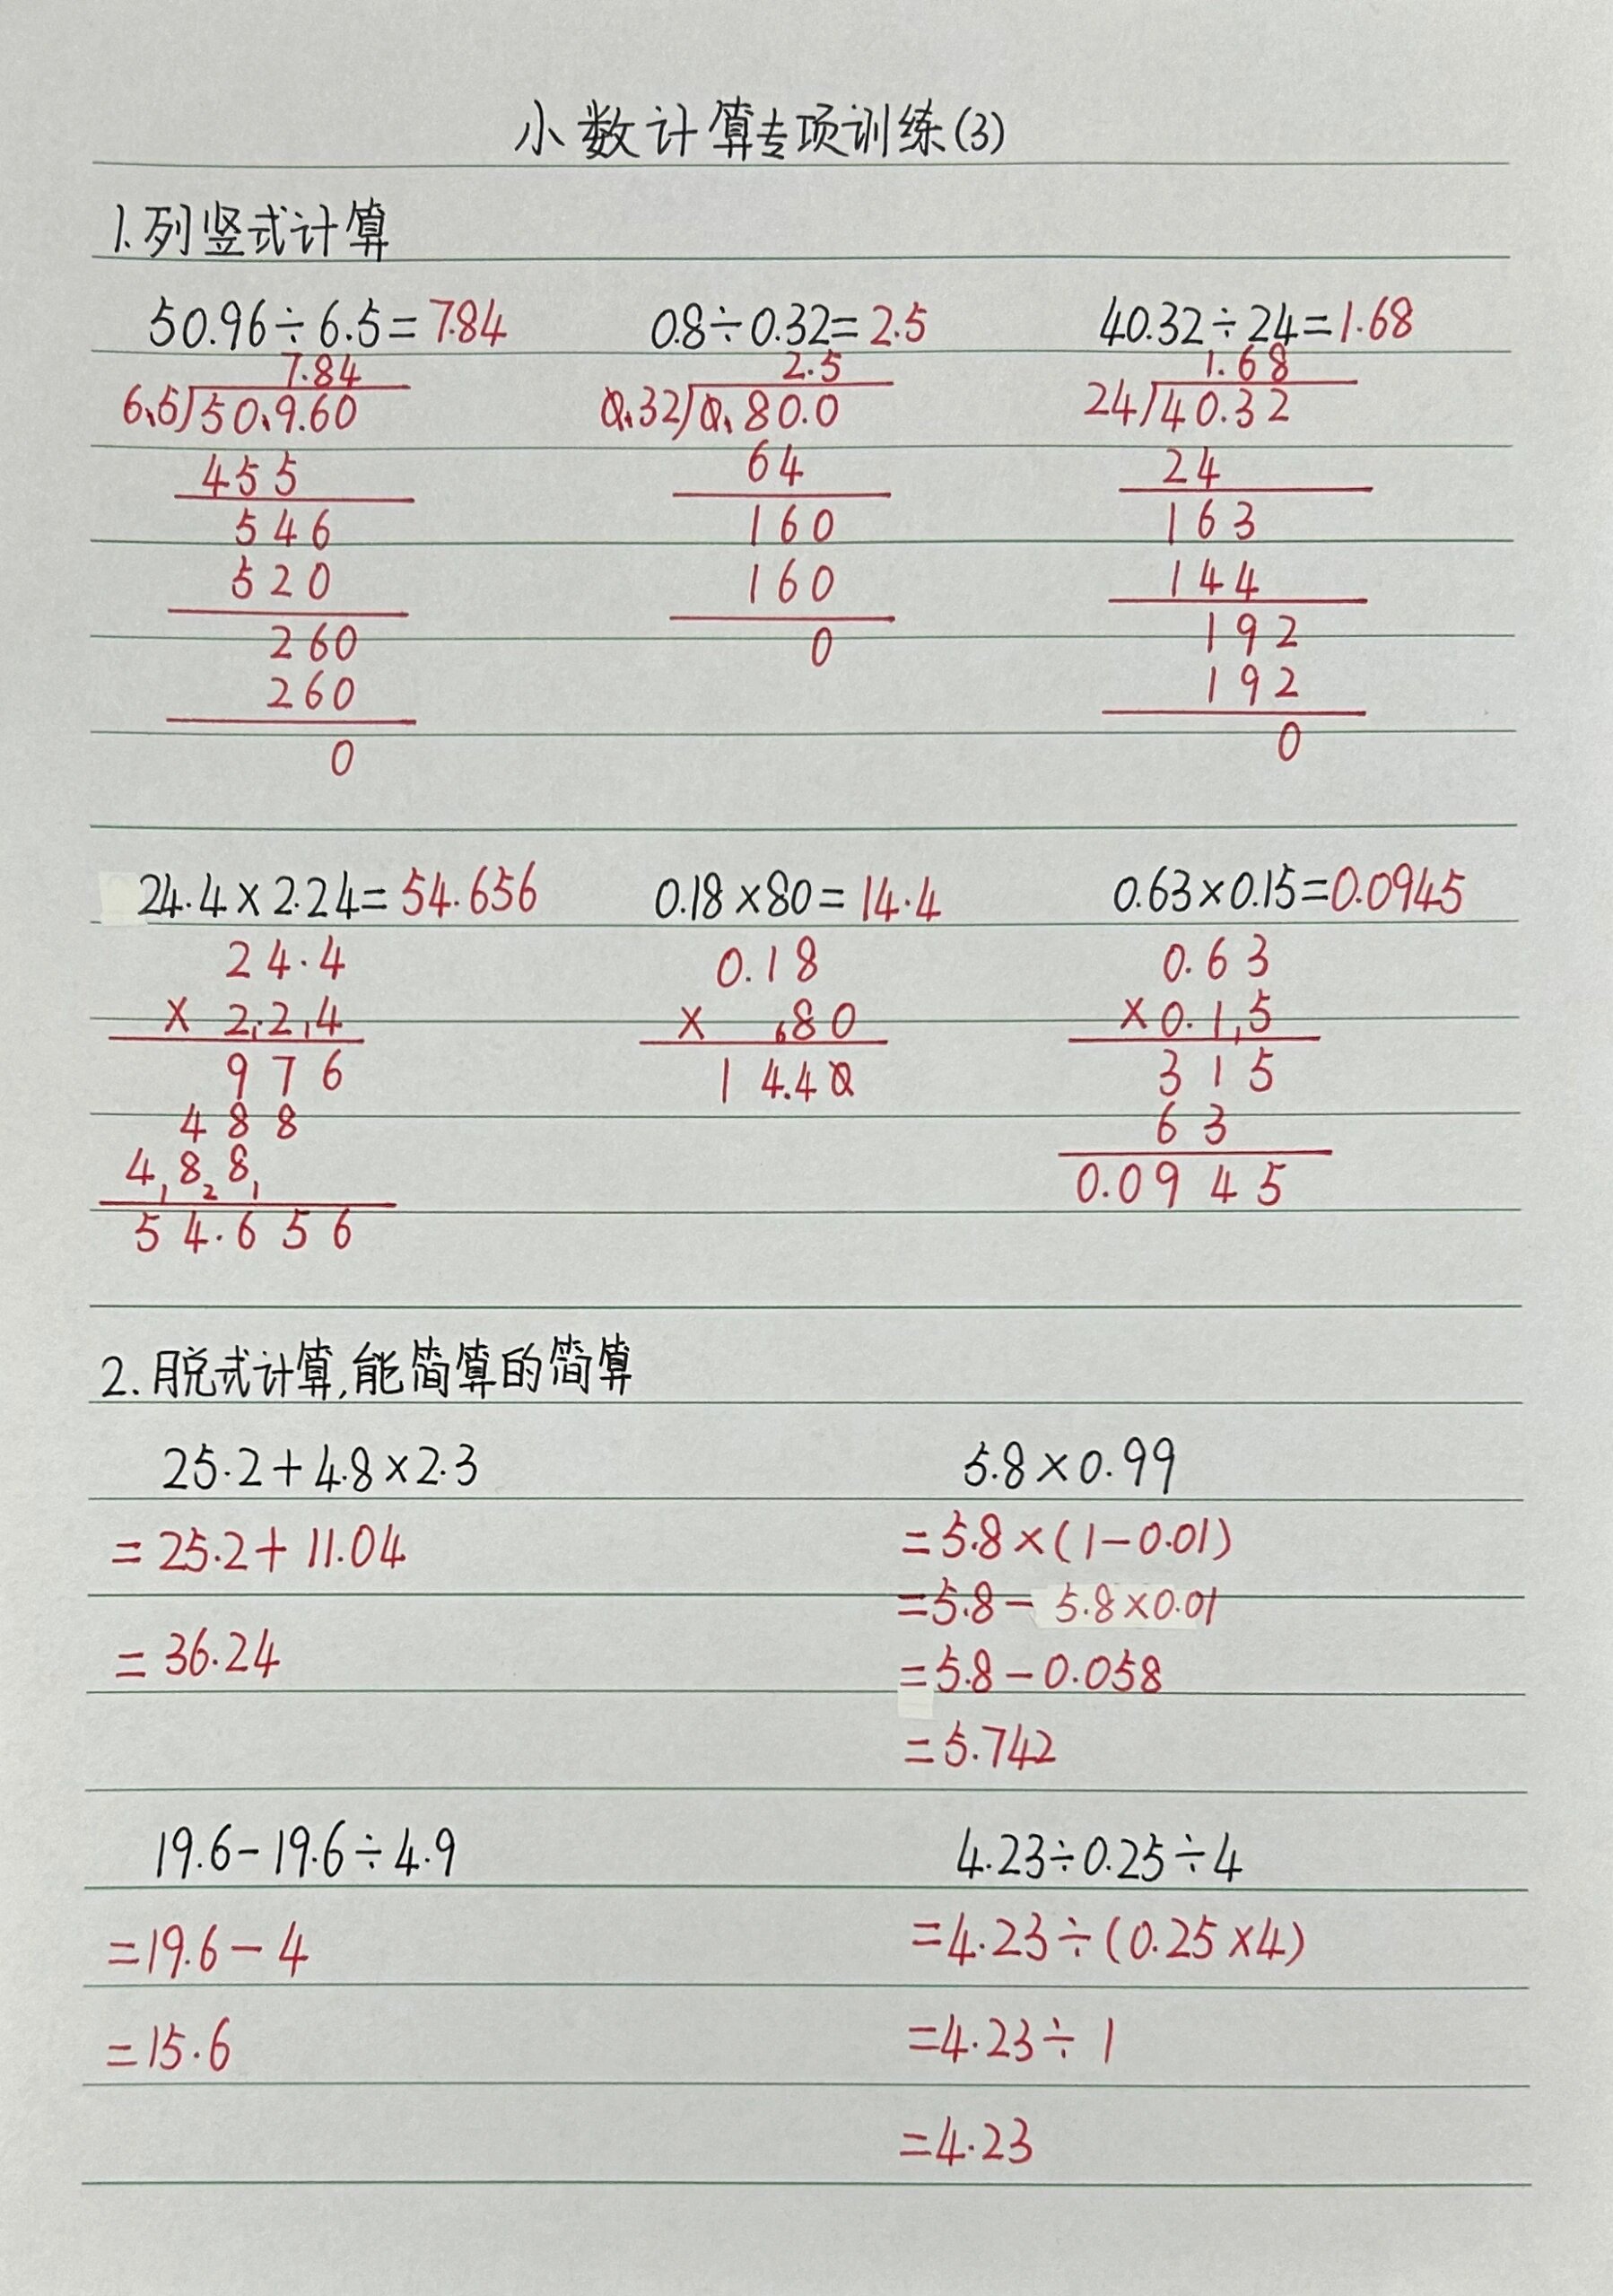 小数计算专项训练(3)
1.列竖式计算
50.96÷6.5=7.84
7.84
6.5)50.9.60
455
546
520
260
260
0
0.8÷0.32=2.5
2.5
0.32)0.80.0
64
160
160
0
40.32÷24=1.68
1.68
24)40.32
24
163
144
192
192
0
24.4×2.24=54.656
24.4
×2.2,4
976
488
4,8₂8,
54.656
0.18×80=14.4
0.18
×₆80
14.40
0.63×0.15=0.0945
0.63
×0.1,5
315
63
0.0945
2.脱式计算,能简算的简算
25.2+4.8×2.3
=25.2+11.04
=36.24
5.8×0.99
=5.8×(1-0.01)
=5.8-5.8×0.01
=5.8-0.058
=5.742
19.6-19.6÷4.9
=19.6-4
=15.6
4.23÷0.25÷4
=4.23÷(0.25×4)
=4.23÷1
=4.23